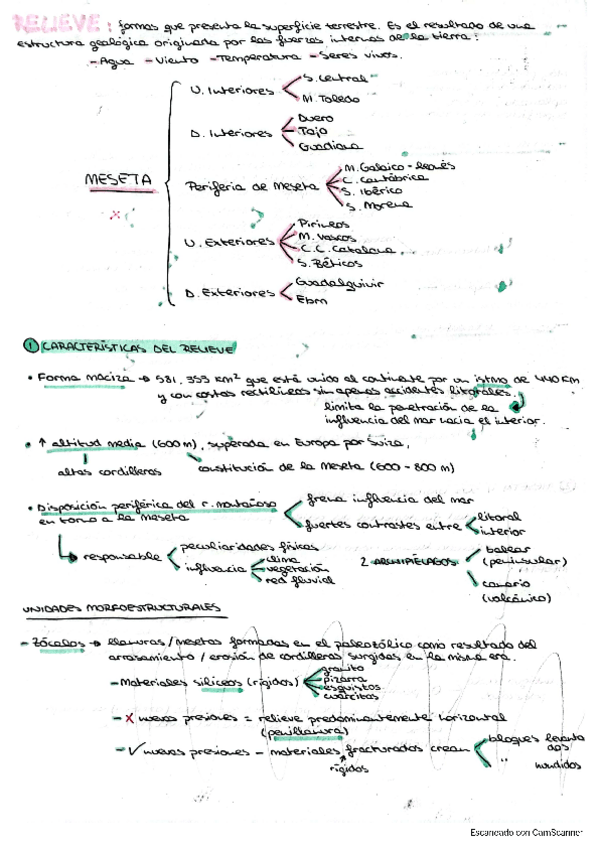 RELIEVE : formas que presenta la superficie terrestre. Es el resultado de una
estructura geológica originada por las fuerzas internas de la tierra :
- Agua - Viento - Temperatura - Seres vivos.
MESETA
U. Interiores
S. Central
M. Toledo
D. Interiores
Duero
Tajo
Guadiana
Periferia de Meseta
M. Galaico-leonés
C. Cantábrica
S. Ibérico
S. Morena
U. Exteriores
Pirineos
M. Vascos
C.C. Catalana
S. Béticos
D. Exteriores
Guadalquivir
Ebro
① CARACTERÍSTICAS DEL RELIEVE
• Forma maciza → 581.353 km² que está unido al continente por un istmo de 440 km
y con costas rectilíneas sin apenas accidentes litorales.
limita la penetración de la
influencia del mar hacia el interior.
• ↑ altitud media (600 m), superada en Europa por Suiza,
altas cordilleras
constitución de la Meseta (600 - 800 m)
• Disposición periférica del r. montañoso
en torno a la meseta
frena influencia del mar
fuertes contrastes entre
litoral
interior
responsable
peculiaridades físicas
influencia
clima
vegetación
red fluvial
2 ARCHIPIÉLAGOS
balear
(peninsular)
canario
(volcánico)
UNIDADES MORFOESTRUCTURALES
- Zócalos → llanuras / mesetas formadas en el paleozoico como resultado del
arrasamiento / erosión de cordilleras surgidas en la misma era.
- Materiales silíceos (rígidos)
granito
pizarra
esquistos
cuarcitas
- X nuevas presiones = relieve predominantemente horizontal
(penillanura)
- ✓ nuevas presiones - materiales fracturados crean
rígidos
bloques levanta
dos
" hundidos
Escaneado con CamScanner